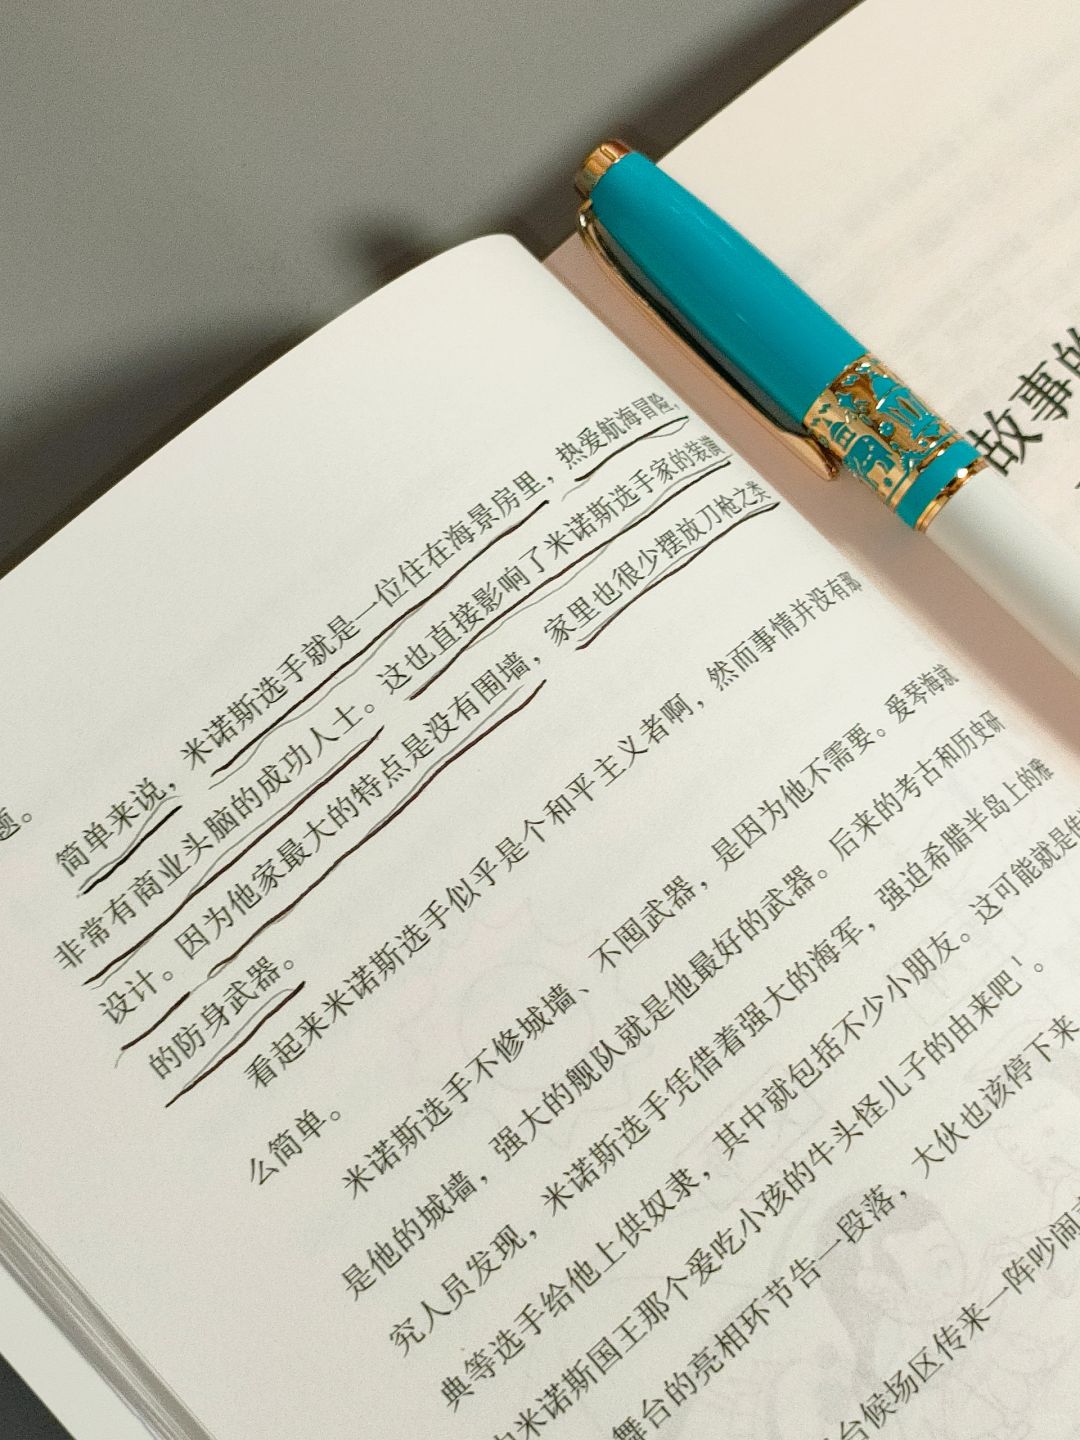 题。
简单来说，米诺斯选手就是一位住在海景房里，热爱航海冒险，
非常有商业头脑的成功人士。这也直接影响了米诺斯选手家的装潢
设计。因为他家最大的特点是没有围墙，家里也很少摆放刀枪之类
的防身武器。
看起来米诺斯选手似乎是个和平主义者啊，然而事情并没有那
么简单。
米诺斯选手不修城墙、不囤武器，是因为他不需要。爱琴海就
是他的城墙，强大的舰队就是他最好的武器。后来的考古和历史研
究人员发现，米诺斯选手凭借着强大的海军，强迫希腊半岛上的雅
典等选手给他上供奴隶，其中就包括不少小朋友。这可能就是传
米诺斯国王那个爱吃小孩的牛头怪儿子的由来吧！。
舞台的亮相环节告一段落，大伙也该停下来
台候场区传来一阵吵闹
故事的